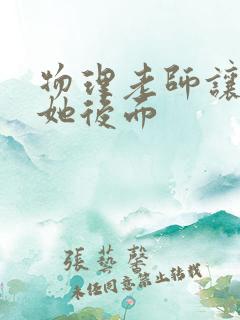 物理老師讓
她後而
張藝馨
未任同意禁止转载